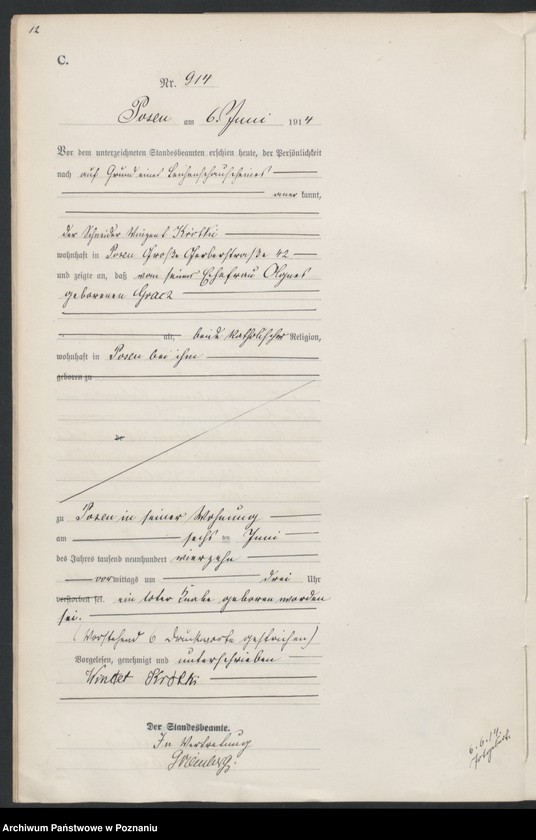 12
C.
Nr. 914
Posen am 6. Juni 1914
Vor dem unterzeichneten Standesbeamten erschien heute, der Persönlichkeit
nach auf Grund eines Leichenschauscheines
anerkannt,
der Schneider Vinzent Krótki
wohnhaft in Posen Große Gerberstraße 42
und zeigte an, daß von seiner Ehefrau Agnes
geborenen
alt, beide katholischer Religion,
wohnhaft in Posen bei ihm
geboren zu
zu Posen in seiner Wohnung
am sechs ten Juni
des Jahres tausend neunhundert vierzehn
vormittags um drei Uhr
verstorben sei. ein toter Knabe geboren worden
sei.
(Vorstehend 6 Druckworte gestrichen)
Vorgelesen, genehmigt und unterschrieben
Krótki
Der Standesbeamte.
In Vertretung
6.6.14.
Archiwum Państwowe w Poznaniu